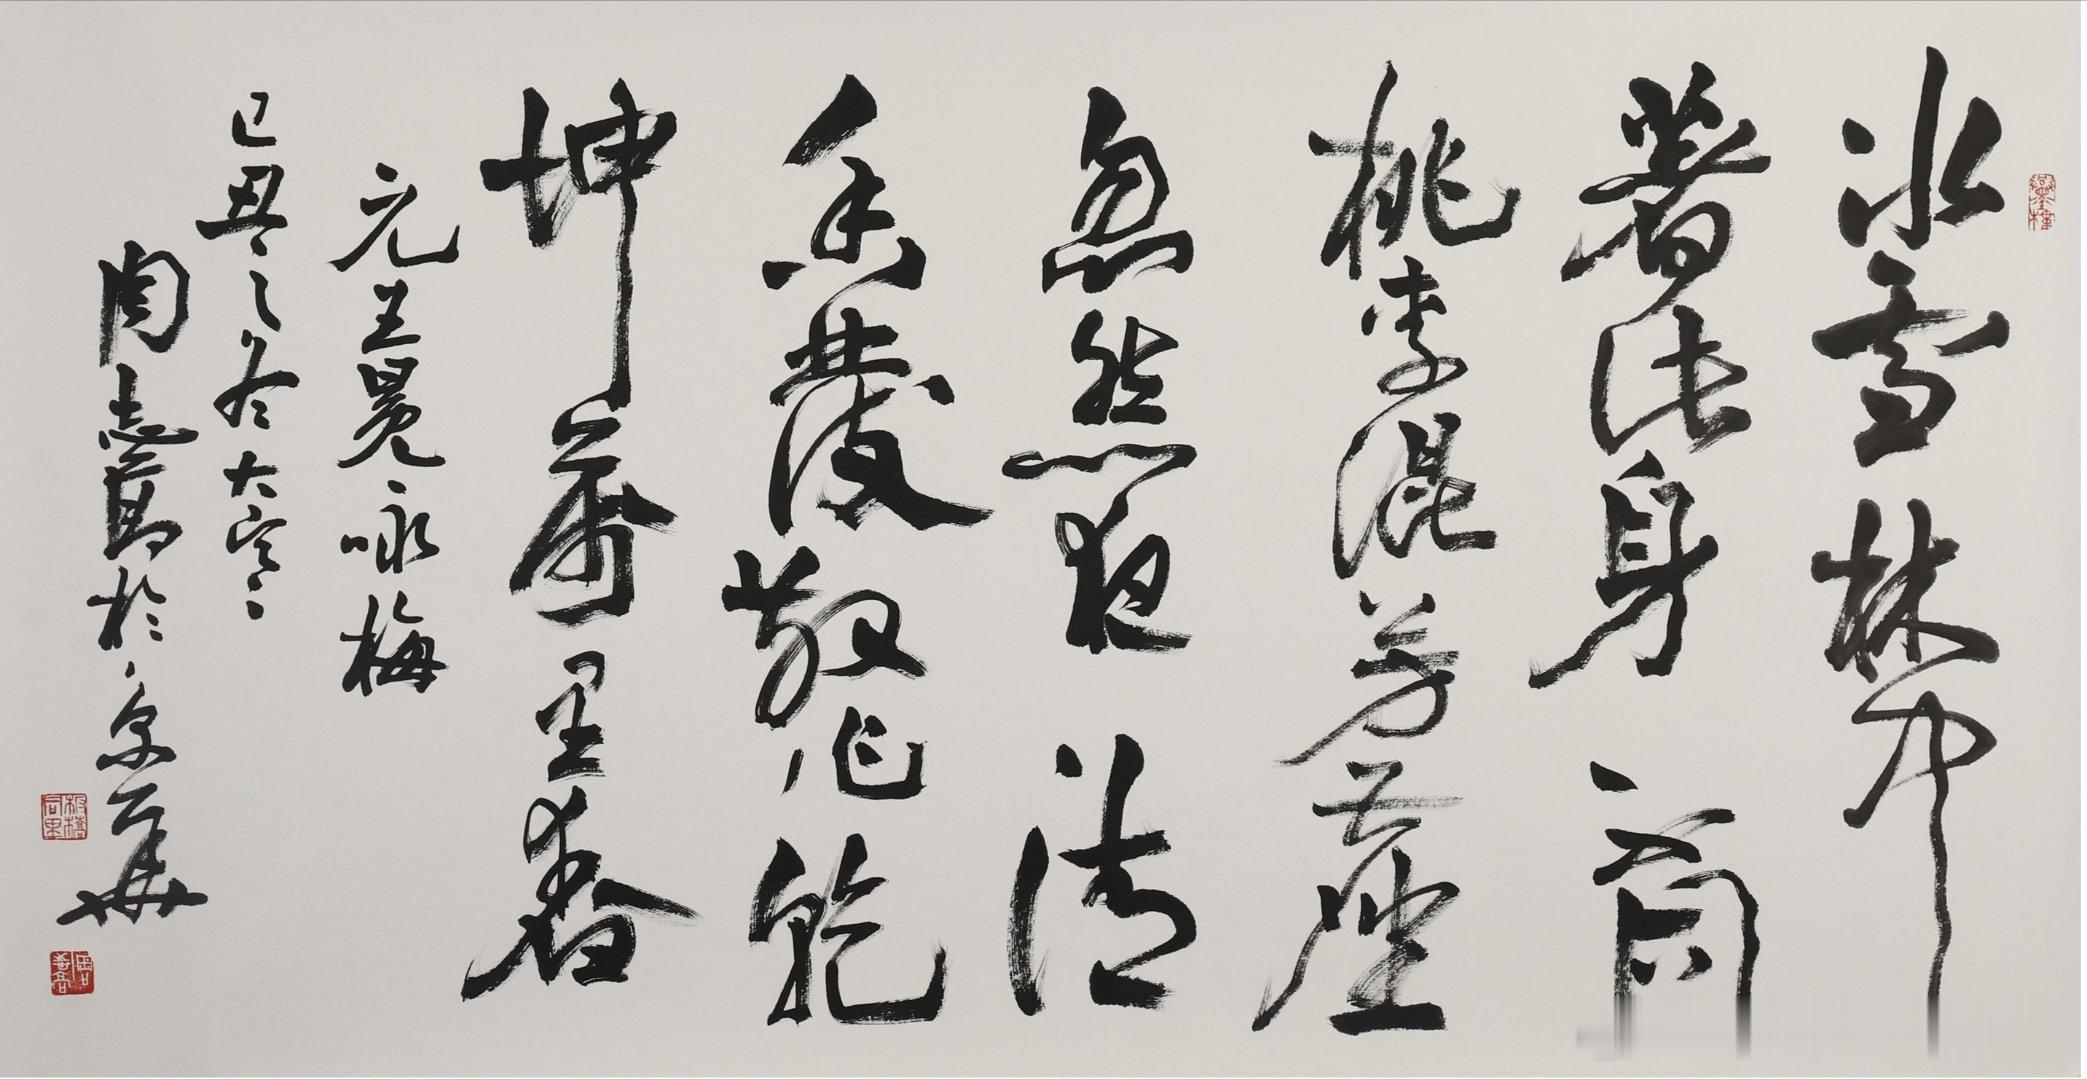 冰雪林中
著此身不同
桃李混芳塵
忽然一夜清
香發散作乾
坤萬里春
元王冕咏梅
己丑之冬大寒
周志高於京華